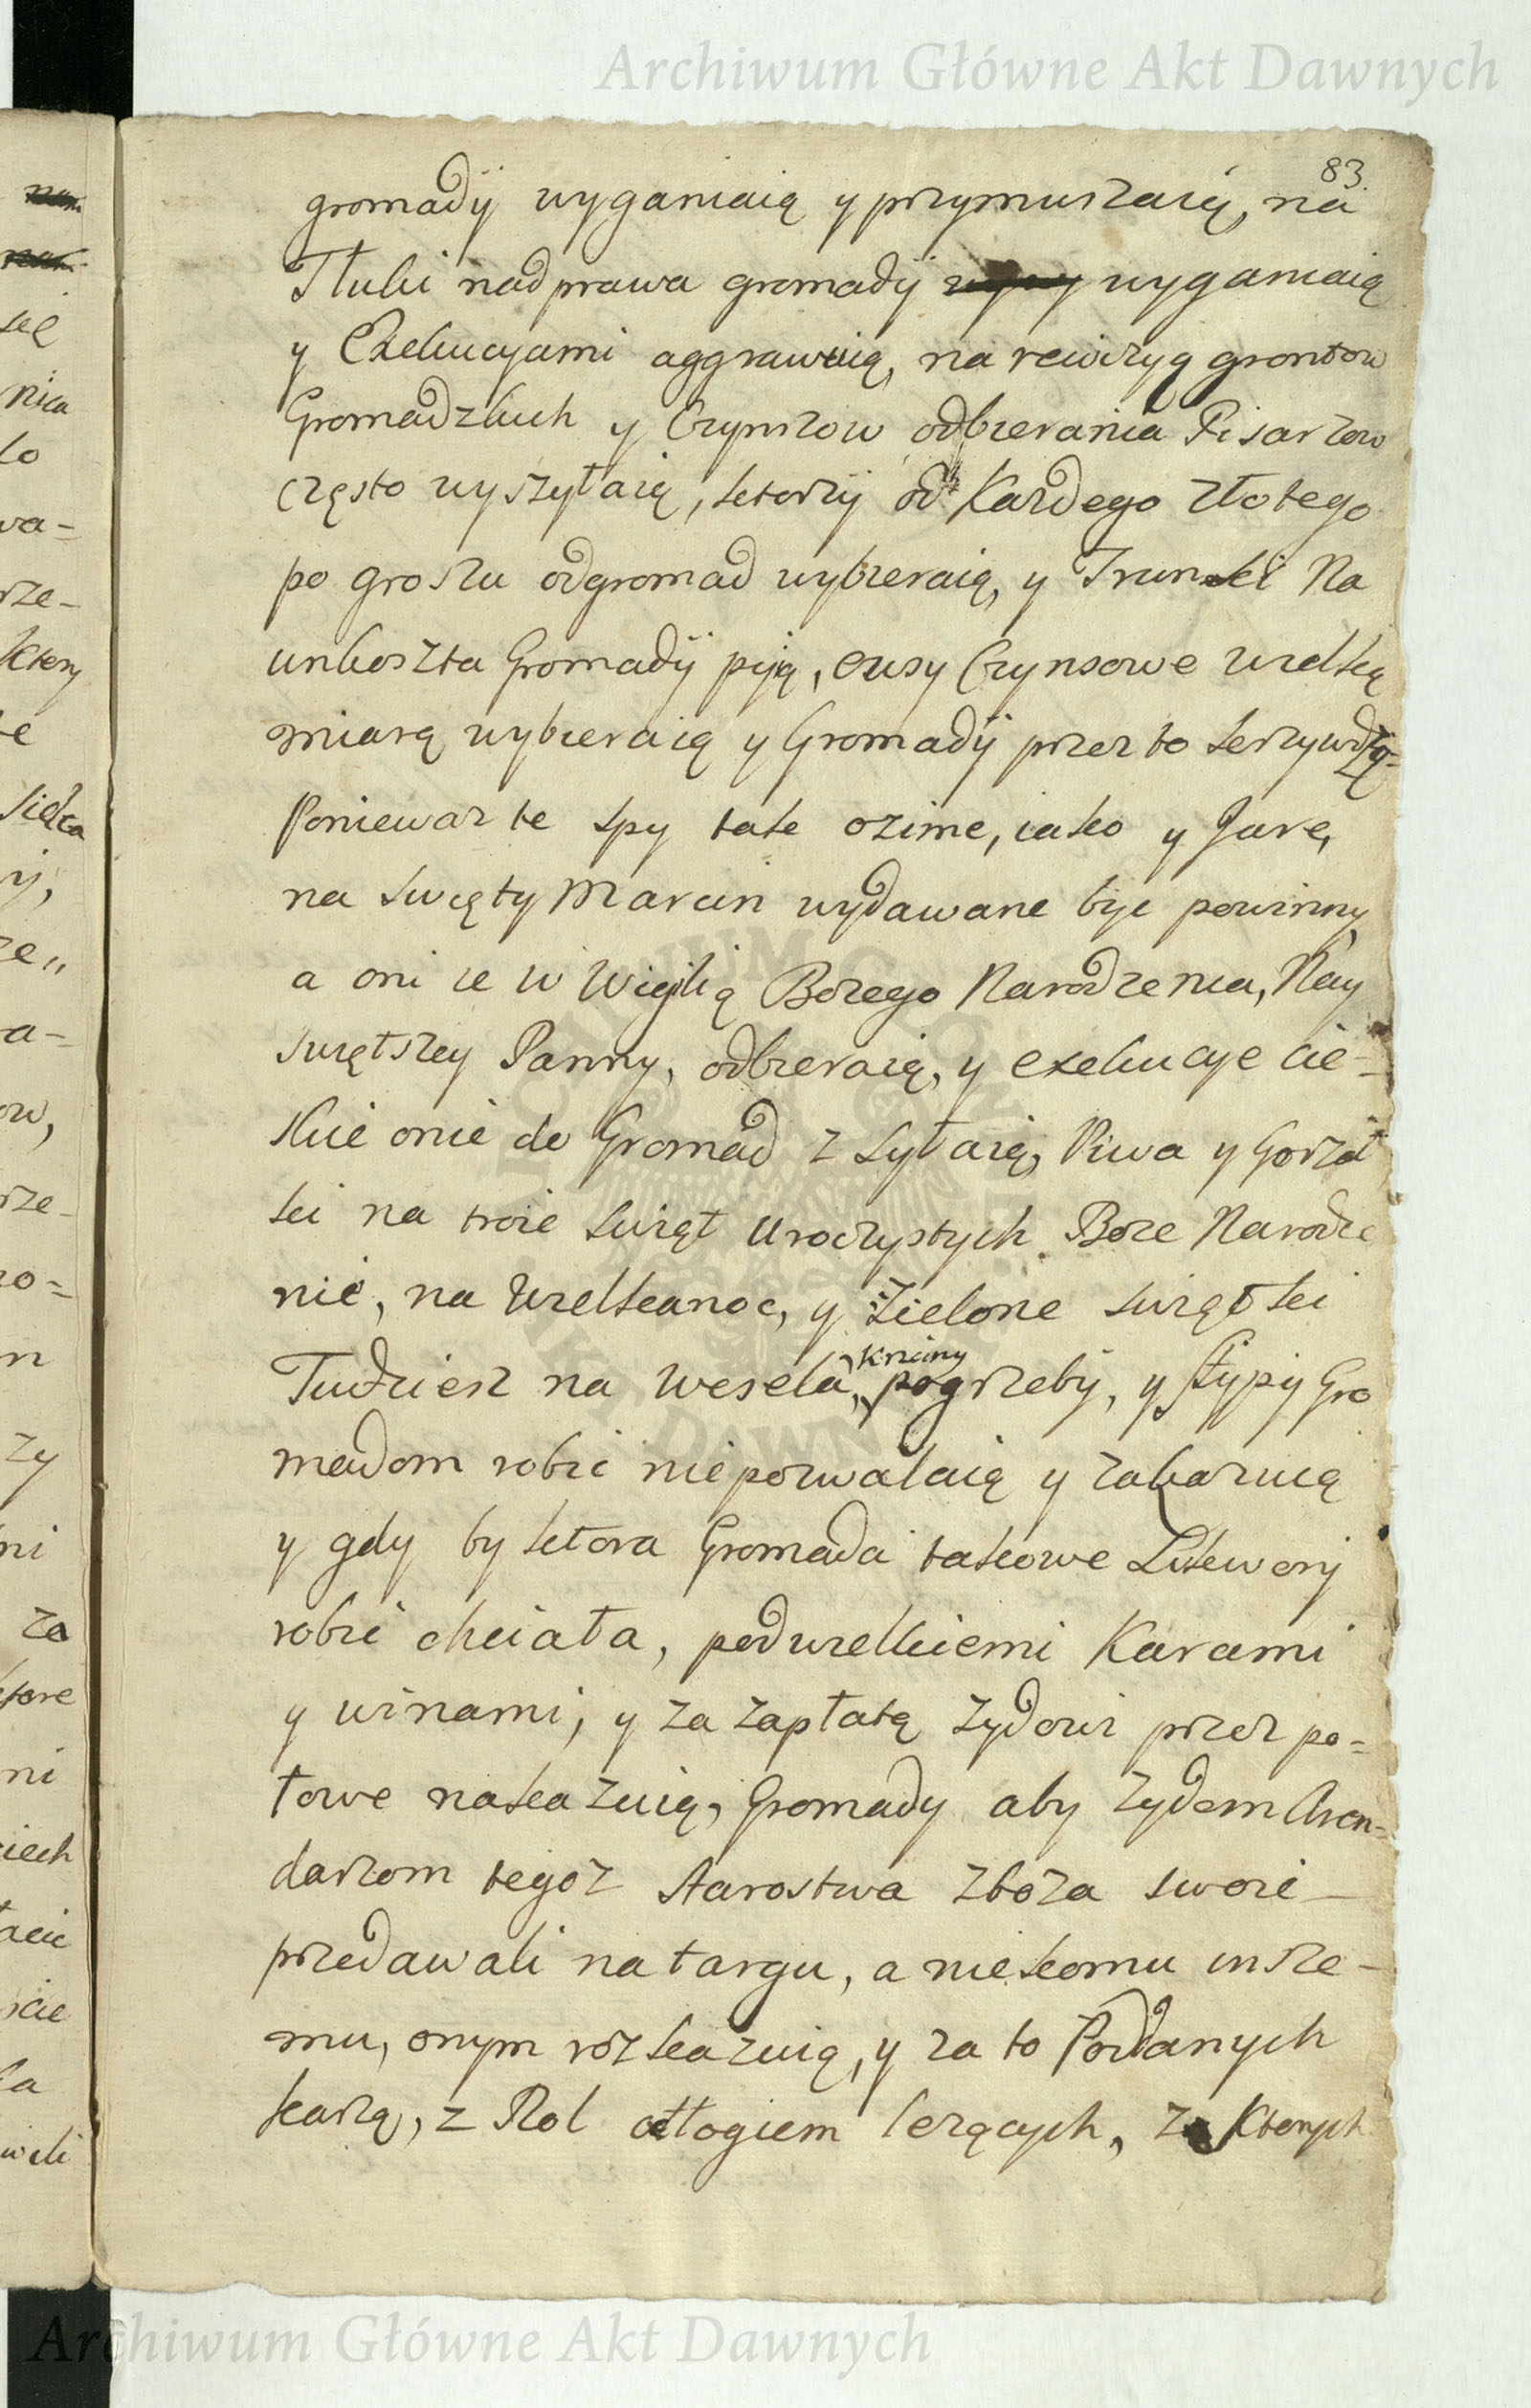 Archiwum Główne Akt Dawnych
83.
gromadÿ wyganiaią y przymuszaią, na
Tłuki nad prawa gromadÿ wyganiaią
y Exekucyami aggrawuią, na rewizyą grontow
Gromadzkich y Czynszow odbierania Pisarzow
często wyszyłaią, ktorzÿ od Kazdego złotego
po groszu od gromad wybieraią, y Trunki Na
unkoszta Gromadÿ piją, owsy Czynsowe wielką
miarą wybieraią y Gromadÿ przez to krzywdzą
Poniewaz te spy tak ozime, iako y Jare,
na swięty Marcin wydawane byc powinny
a oni ie w Wigilią Bozego Narodzenia, Nay
swiętszey Panny, odbieraią, y exekucye cie-
skie onie do Gromad z syłaią, Piwa y Gorzał
ki na troie swięt Uroczystych Boze Narodze
nie, na Wielkanoc, y Zielone swiątki
Tudziesz na Wesela, krzciny pogrzeby, y stypÿ Gro
madom robić nie pozwalaią y zakazuią
y gdy by ktora Gromada takowe Likworÿ
robić chciała, pod wielkiemi Karami
y winami, y za zapłatą zydowi przez po=
łowe nakazuią, Gromady aby zydom Aren=
darzom tegoz Starostwa zboza swoie
przedawali na targu, a nie komu insze-
mu, onym rozkazuią, y za to Poddanych
karzą, z Rol odłogiem lezących, z Ktorych
Archiwum Główne Akt Dawnych